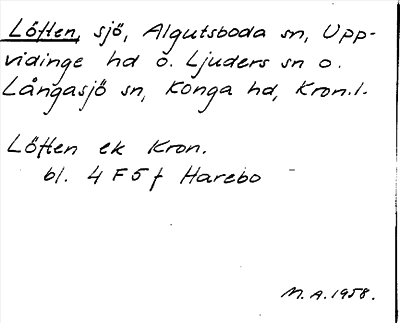 Löften, sjö, Algutsboda sn, Upp-
vidinge hd o. Ljuders sn o.
Långasjö sn, Konga hd, Kron.l.
Löften ek Kron.
bl. 4 F 5 f Harebo
M.A.1958.